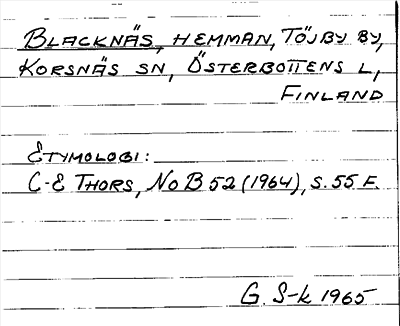 BLACKNÄS, HEMMAN, TÖJBY BY,
KORSNÄS SN, ÖSTERBOTTENS L,
FINLAND
ETYMOLOGI:
C-E THORS, NoB 52 (1964), S. 55 F.
G. S-k 1965